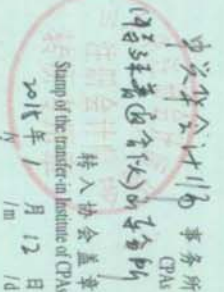 中兴华会计师 事务所
CPAs
(特殊普通合伙)分所
转入协会盖章
Stamp of the transfer-in Institute of CPAs
2015年 1 月 12 日
/y /m /d